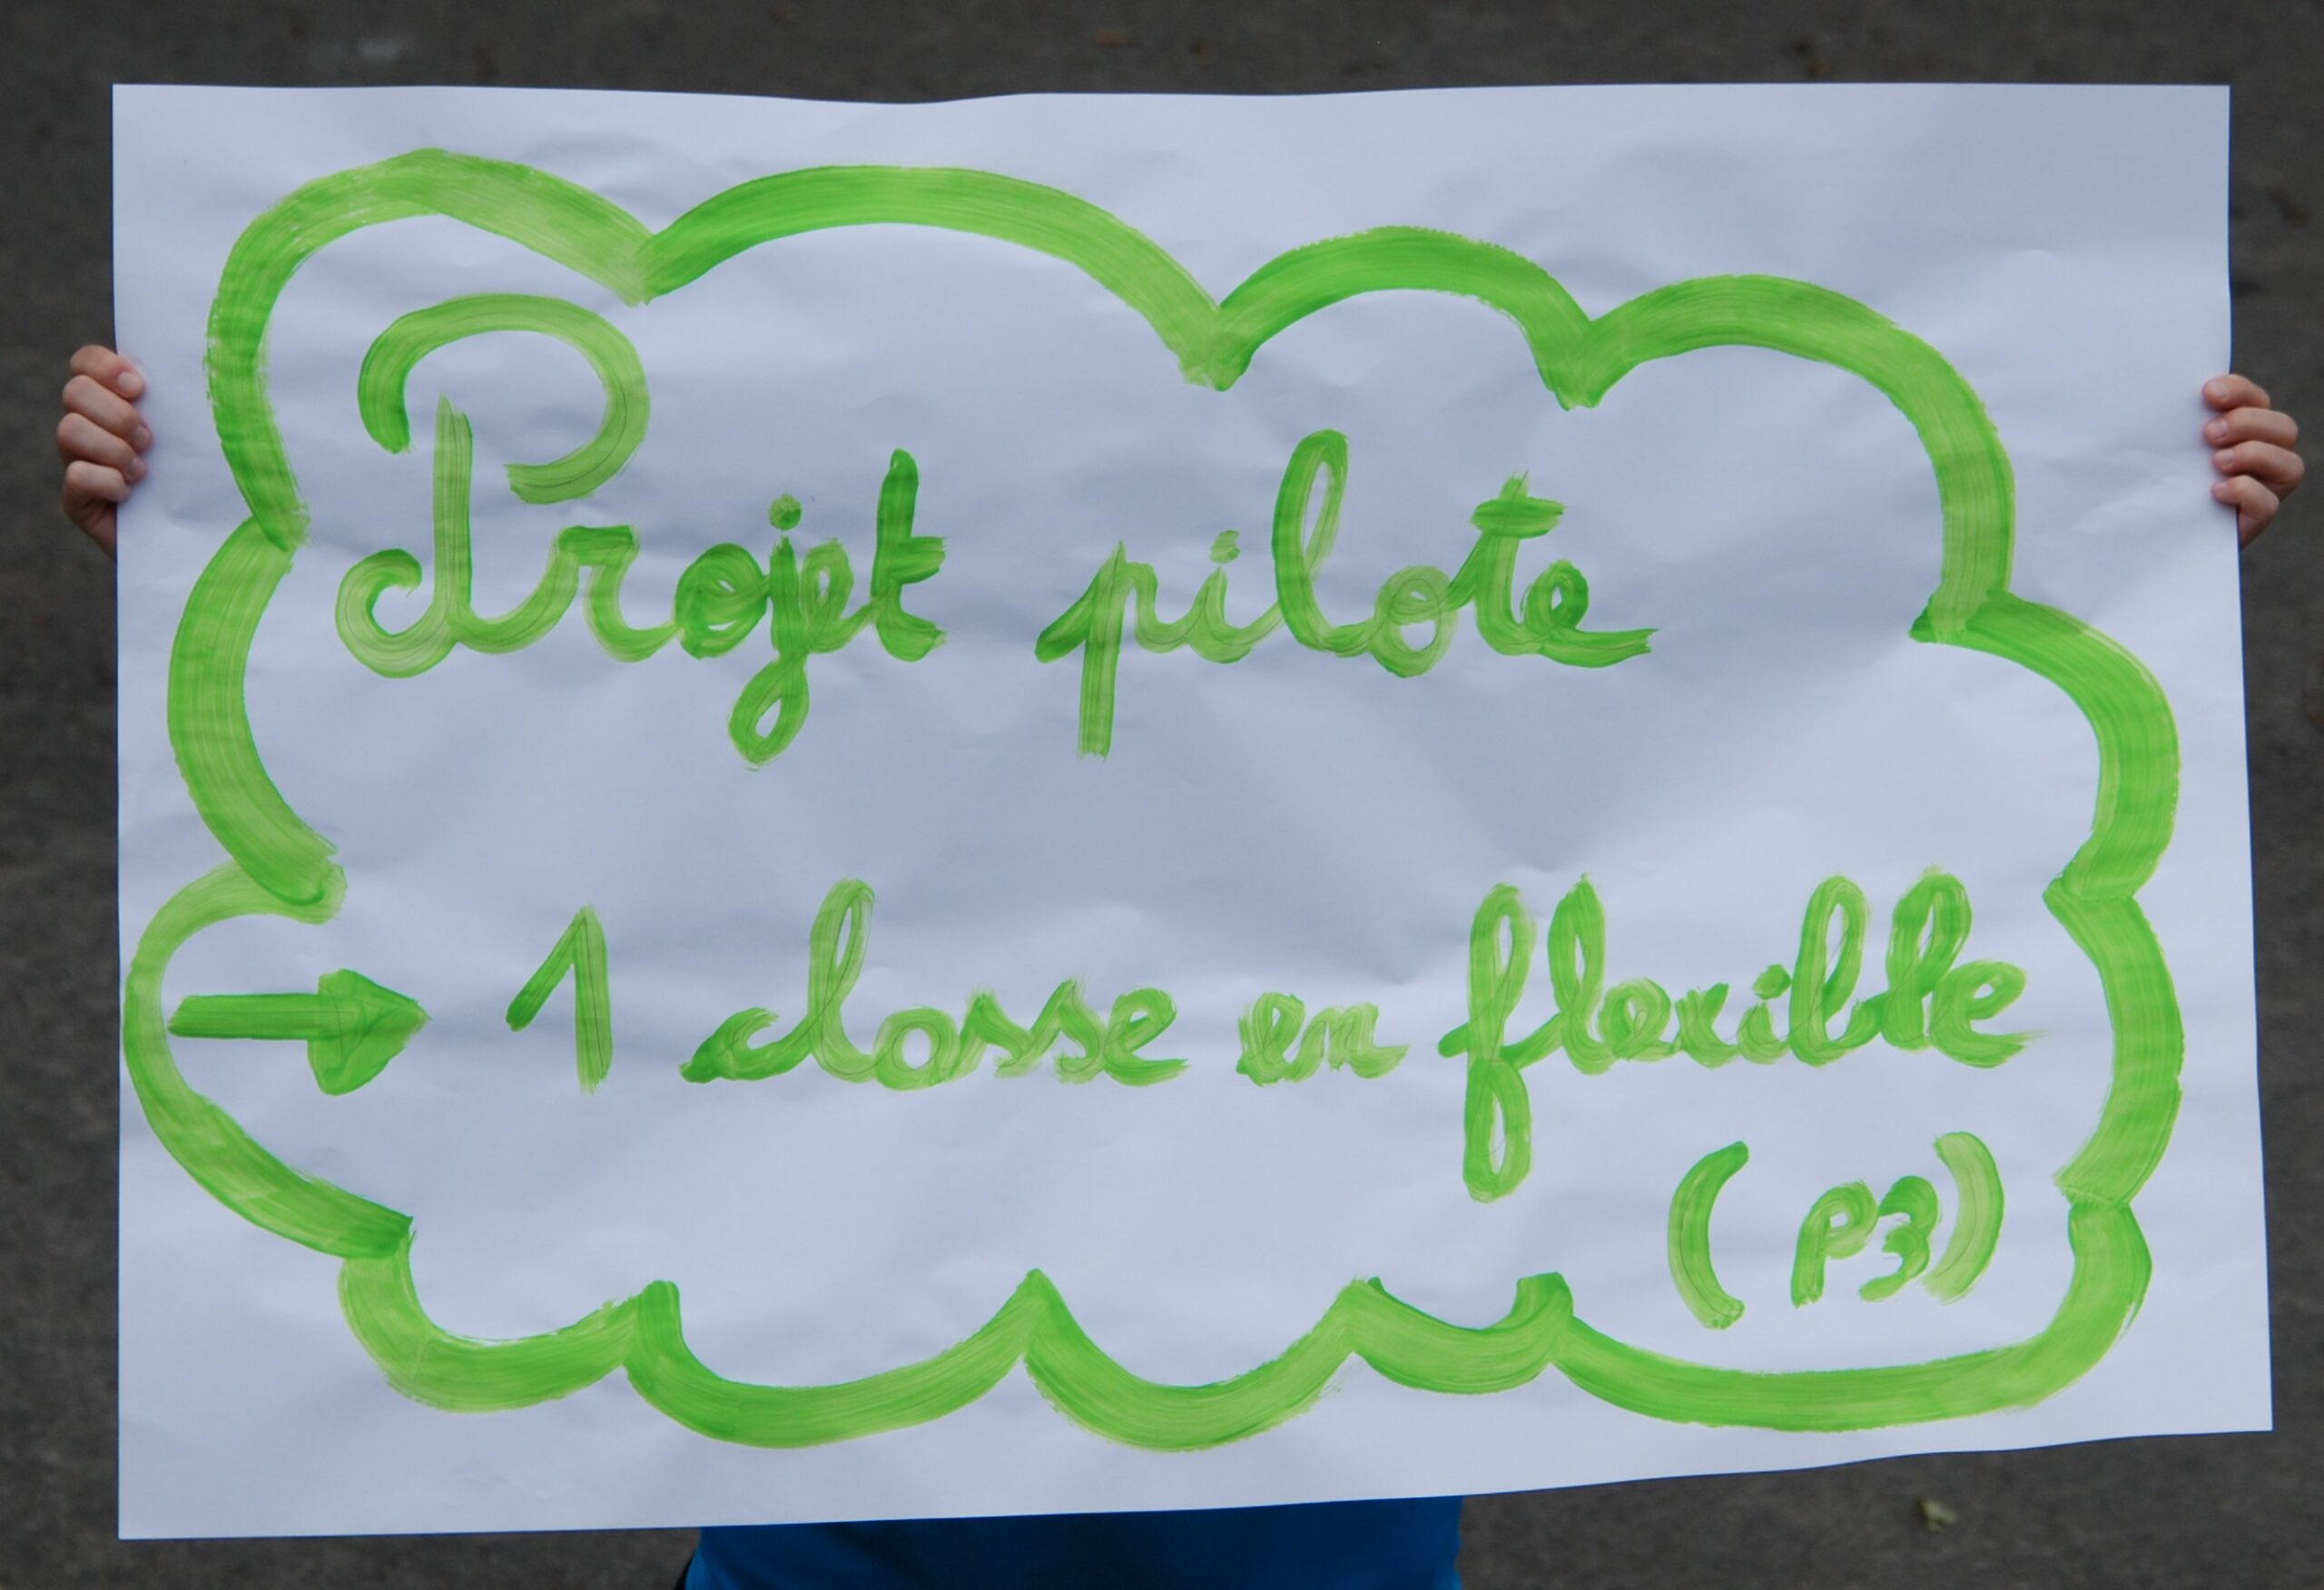 Projet pilote
→ 1 classe en flexible
(P3)